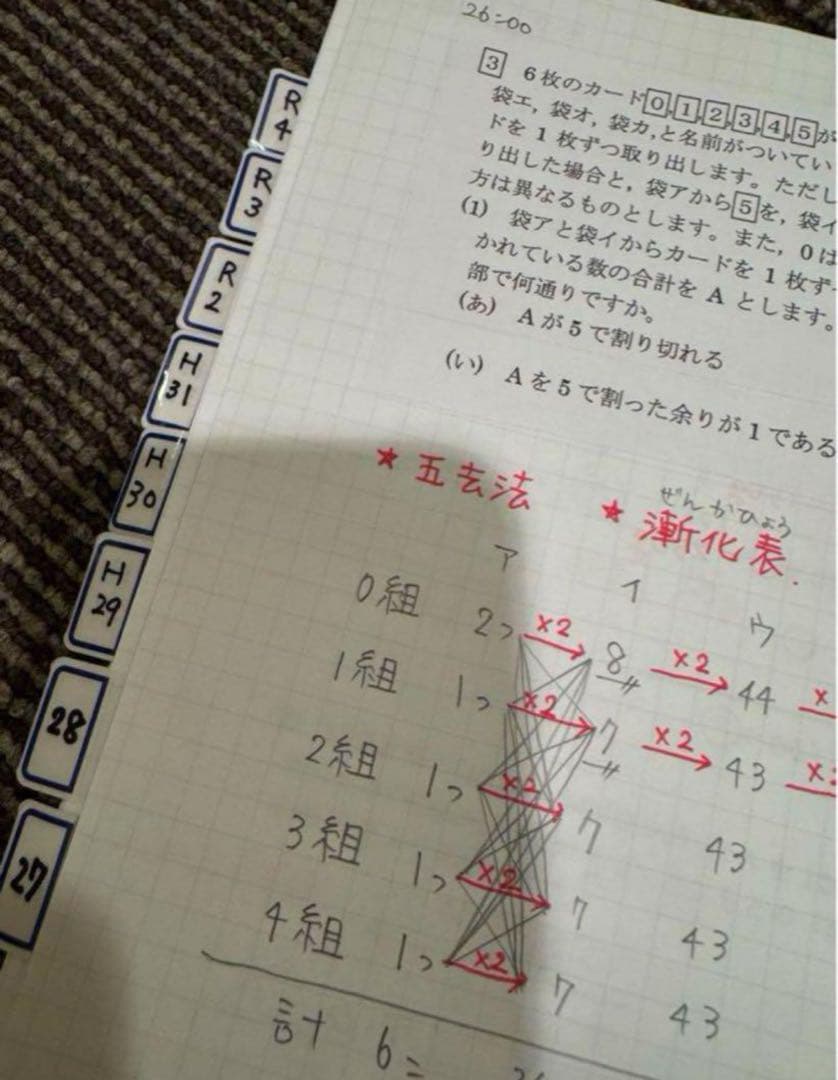 26:00
3 6枚のカード0,1,2,3,4,5が
袋エ，袋オ，袋カ,と名前がついてい
ドを1枚ずつ取り出します。ただし
り出した場合と，袋アから5を，袋イ
方は異なるものとします。また，0は
(1) 袋アと袋イからカードを1枚ず
かれている数の合計をAとします。
部で何通りですか。
(あ) Aが5で割り切れる
(い) Aを5で割った余りが1である
★五去法
ぜんかひょう
★漸化表.
ア イ ウ
0組 2っ ×2 8 ×2 44 ×
1組 1っ ×2 7 ×2 43 ×2
2組 1っ ×2 7 43
3組 1っ ×2 7 43
4組 1っ ×2 7 43
計 6=
R4
R3
R2
H31
H30
H29
28
27